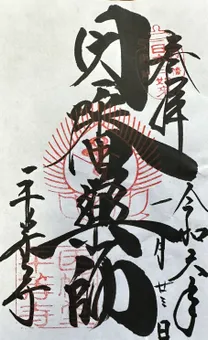 奉拝
令和六年
一月廿三日
因幡薬師
平等寺